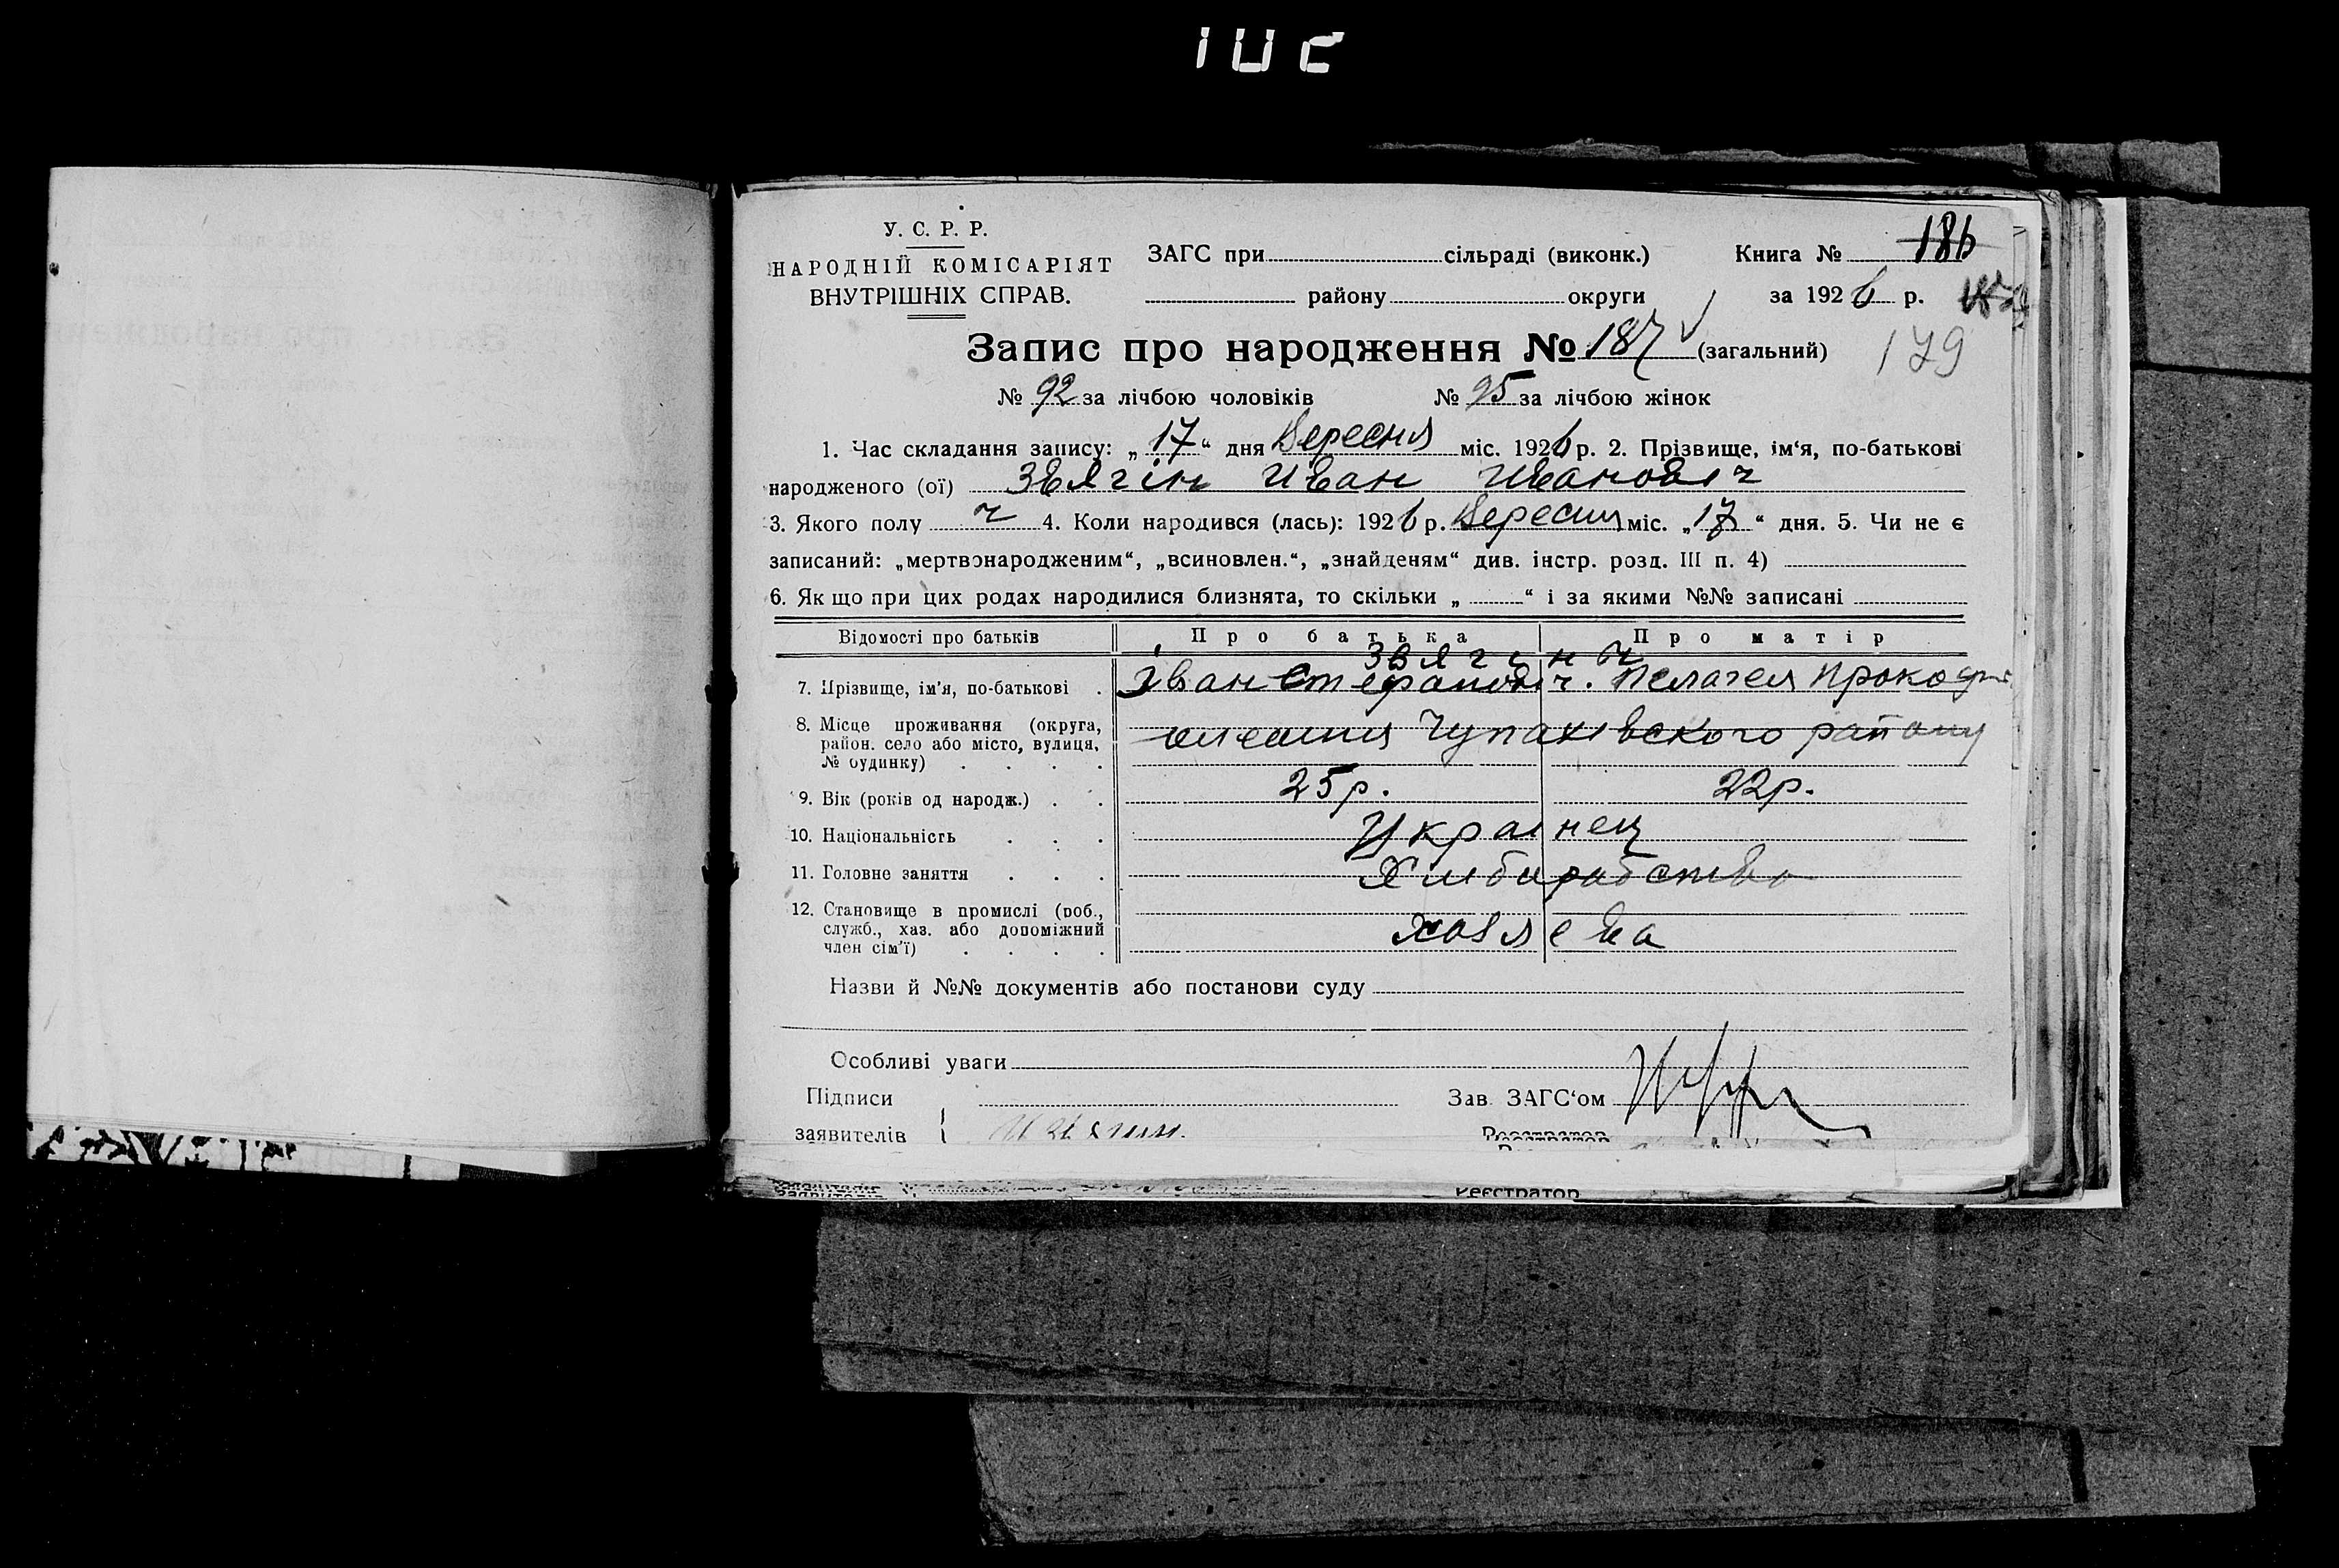 У. С. Р. Р.
НАРОДНІЙ КОМІСАРІЯТ
ВНУТРІШНІХ СПРАВ.
ЗАГС при сільраді (виконк.)
району округи
Книга № 186
за 1926 р.
179
Запис про народження № 187 (загальний)
№ 92 за лічбою чоловіків № 95 за лічбою жінок
1. Час складання запису: „17“ дня Вересня міс. 1926 р. 2. Прізвище, ім‘я, по-батькові
народженого (ої) Звягін Иван Иванович
3. Якого полу ч 4. Коли народився (лась): 1926 р. Вересня міс. „17“ дня. 5. Чи не є
записаний: „мертвонародженим“, „всиновлен.“, „знайденям“ див. інстр. розд. III п. 4)
6. Як що при цих родах народилися близнята, то скільки „ “ і за якими №№ записані
Відомості про батьків Про батька Про матір
Звягин
7. Прізвище, ім'я, по-батькові . Іван Стефанович. Пелагея
8. Місце проживання (округа,
район. село або місто, вулиця,
№ будинку) . . . . Чупаківского району
9. Вік (років од народж.) . . 25 р. 22 р.
10. Національність . . . Українец
11. Головне заняття . . .
12. Становище в промислі (роб.,
служб., хаз. або допоміжний
член сім'ї) . . . .
Назви й №№ документів або постанови суду
Особливі уваги
Підписи
заявителів
Зав. ЗАГС‘ом
Реєстратор
Реєстратор